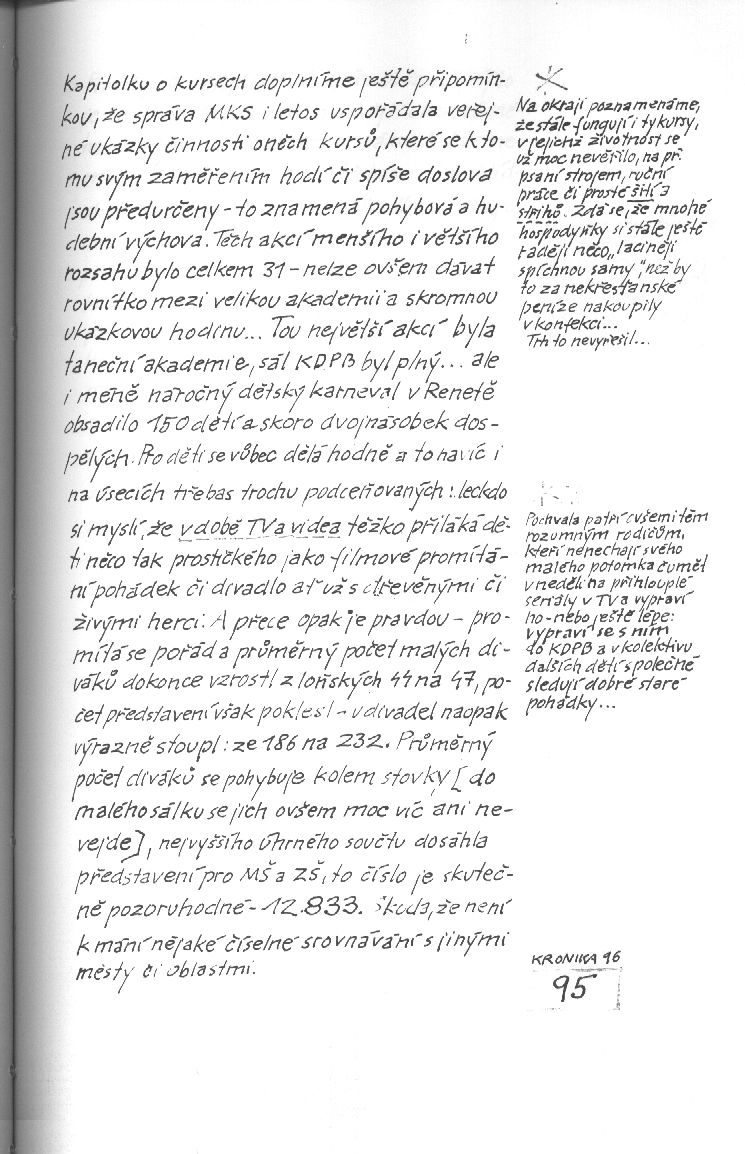 Kapitolku o kursech doplníme ještě připomín-
kou, že správa MKS i letos uspořádala veřej-
né ukázky činnosti oněch kursů, které se k to-
mu svým zaměřením hodí či spíše doslova
jsou předurčeny - to znamená pohybová a hu-
dební výchova. Těch akcí menšího i většího
rozsahu bylo celkem 31 - nelze ovšem dávat
rovnítko mezi velikou akademii a skromnou
ukázkovou hodinu... Tou největší akcí byla
taneční akademie, sál KDPB byl plný... ale
i méně náročný dětský karneval v Renetě
obsadilo 150 dětí a skoro dvojnásobek dos-
pělých. Pro děti se vůbec dělá hodně a to navíc i
na úsecích třebas trochu podceňovaných: leckdo
si myslí, že v době TV a videa těžko přiláká dě-
ti něco tak prostičkého jako filmové promítá-
ní pohádek či divadlo ať už s dřevěnými či
živými herci. A přece opak je pravdou - pro-
mítá se pořád a průměrný počet malých di-
váků dokonce vzrostl z loňských 44 na 47, po-
čet představení však poklesl - u divadel naopak
výrazně stoupl: ze 186 na 232. Průměrný
počet diváků se pohybuje kolem stovky [do
malého sálku se jich ovšem moc víc ani ne-
vejde], nejvyššího úhrného součtu dosáhla
představení pro MŠ a ZŠ, to číslo je skuteč-
ně pozoruhodné - 12.833. Škoda, že není
k mání nějaké číselné srovnávání s jinými
městy či oblastmi.
Na okraji poznamenáme,
že stále fungují i ty kursy,
v jejichž životnost se
už moc nevěřilo, na př.
psaní strojem, ruční
práce či prosté šití a
střihů. Zdá se, že mnohé
hospodyňky si stále ještě
raději něco "laciněji
spíchnou samy", než by
to za nekřesťanské
peníze nakoupily
v konfekci...
Trh to nevyřešil...
Pochvala patří ovšem i těm
rozumným rodičům,
kteří nenechají svého
malého potomka čumět
v neděli na přihlouplé
seriály v TV a vypraví
ho - nebo ještě lépe:
vypraví se s ním
do KDPB a v kolektivu
dalších dětí společně
sledují dobré staré
pohádky...
KRONIKA 96
95